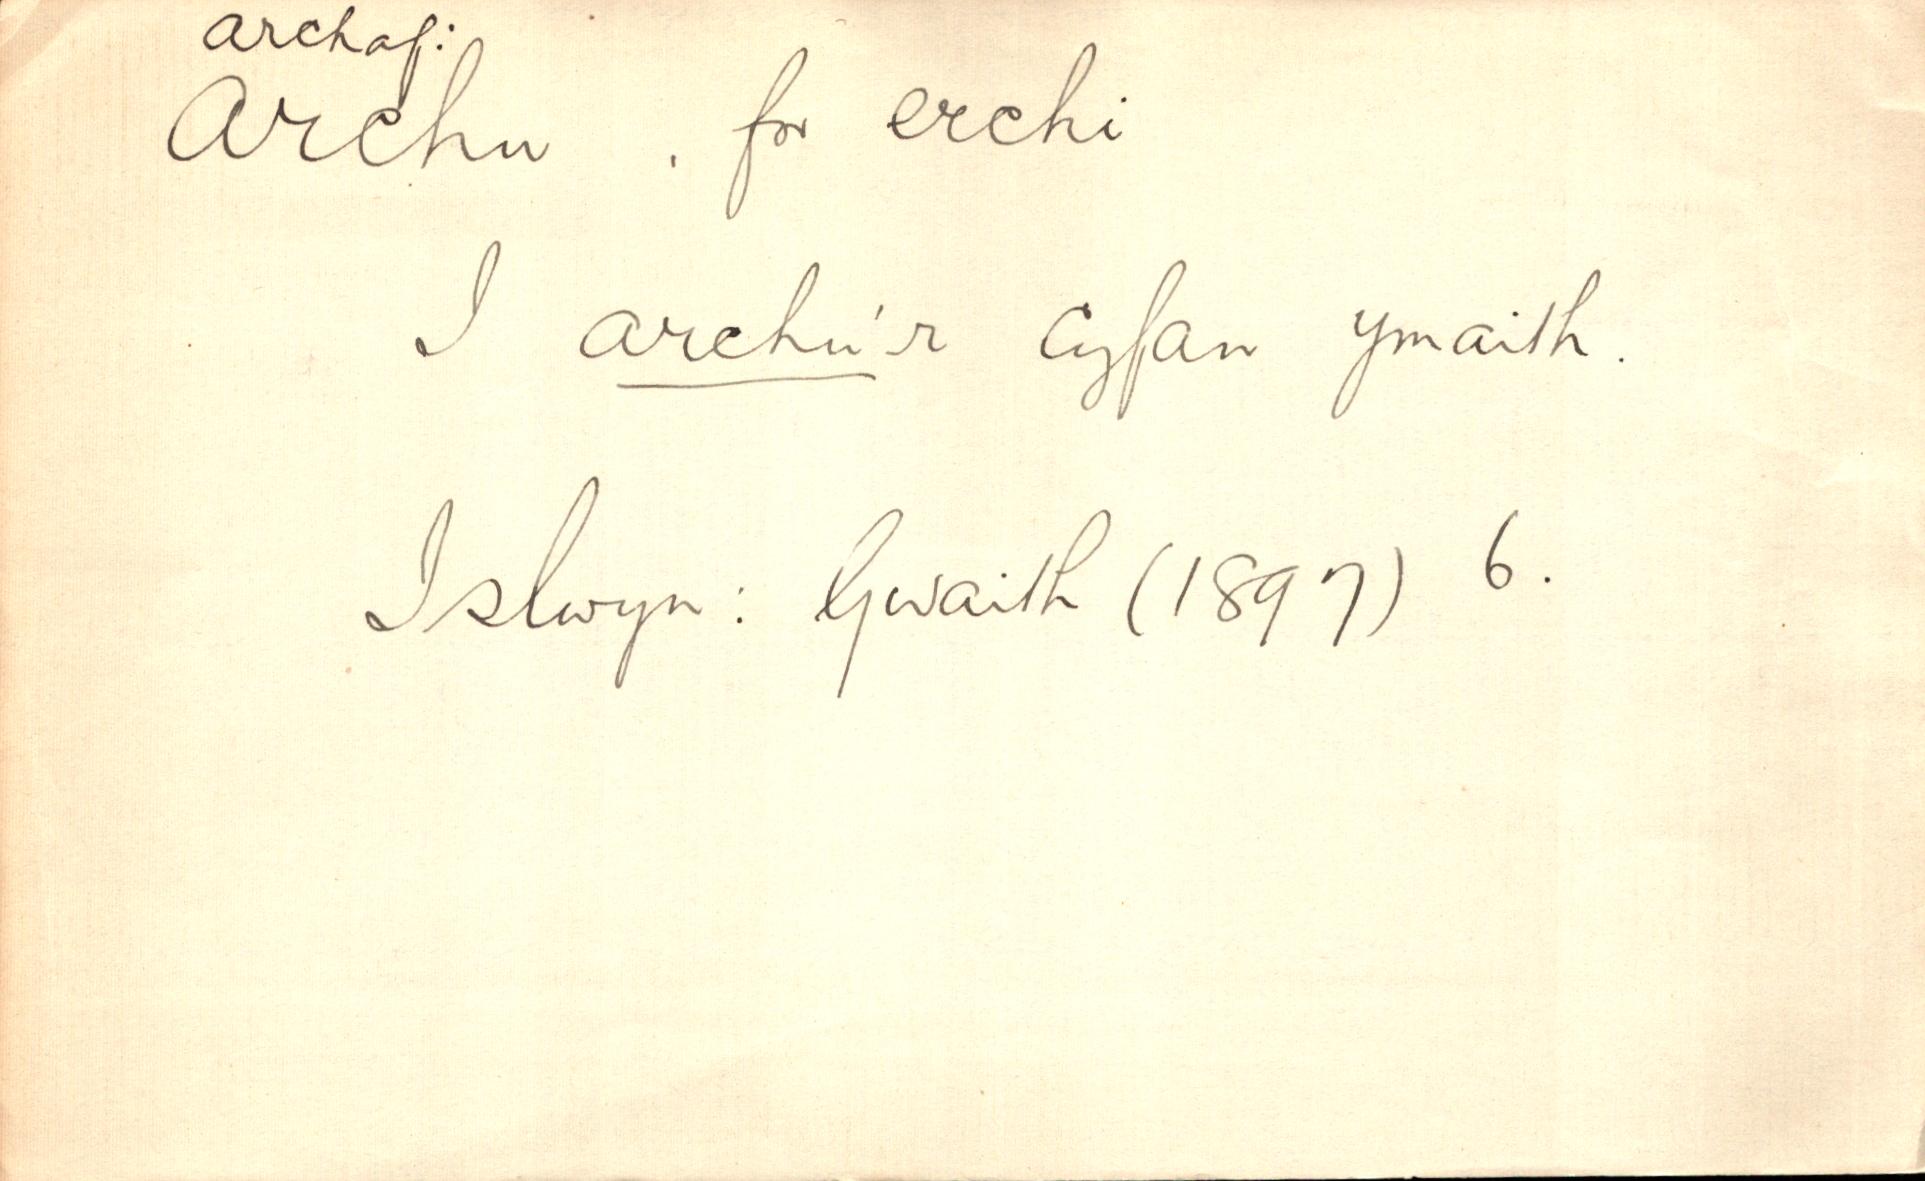 archaf:
Archu , for erchi
I archu'r cyfan ymaith.
Islwyn: Gwaith (1897) 6.